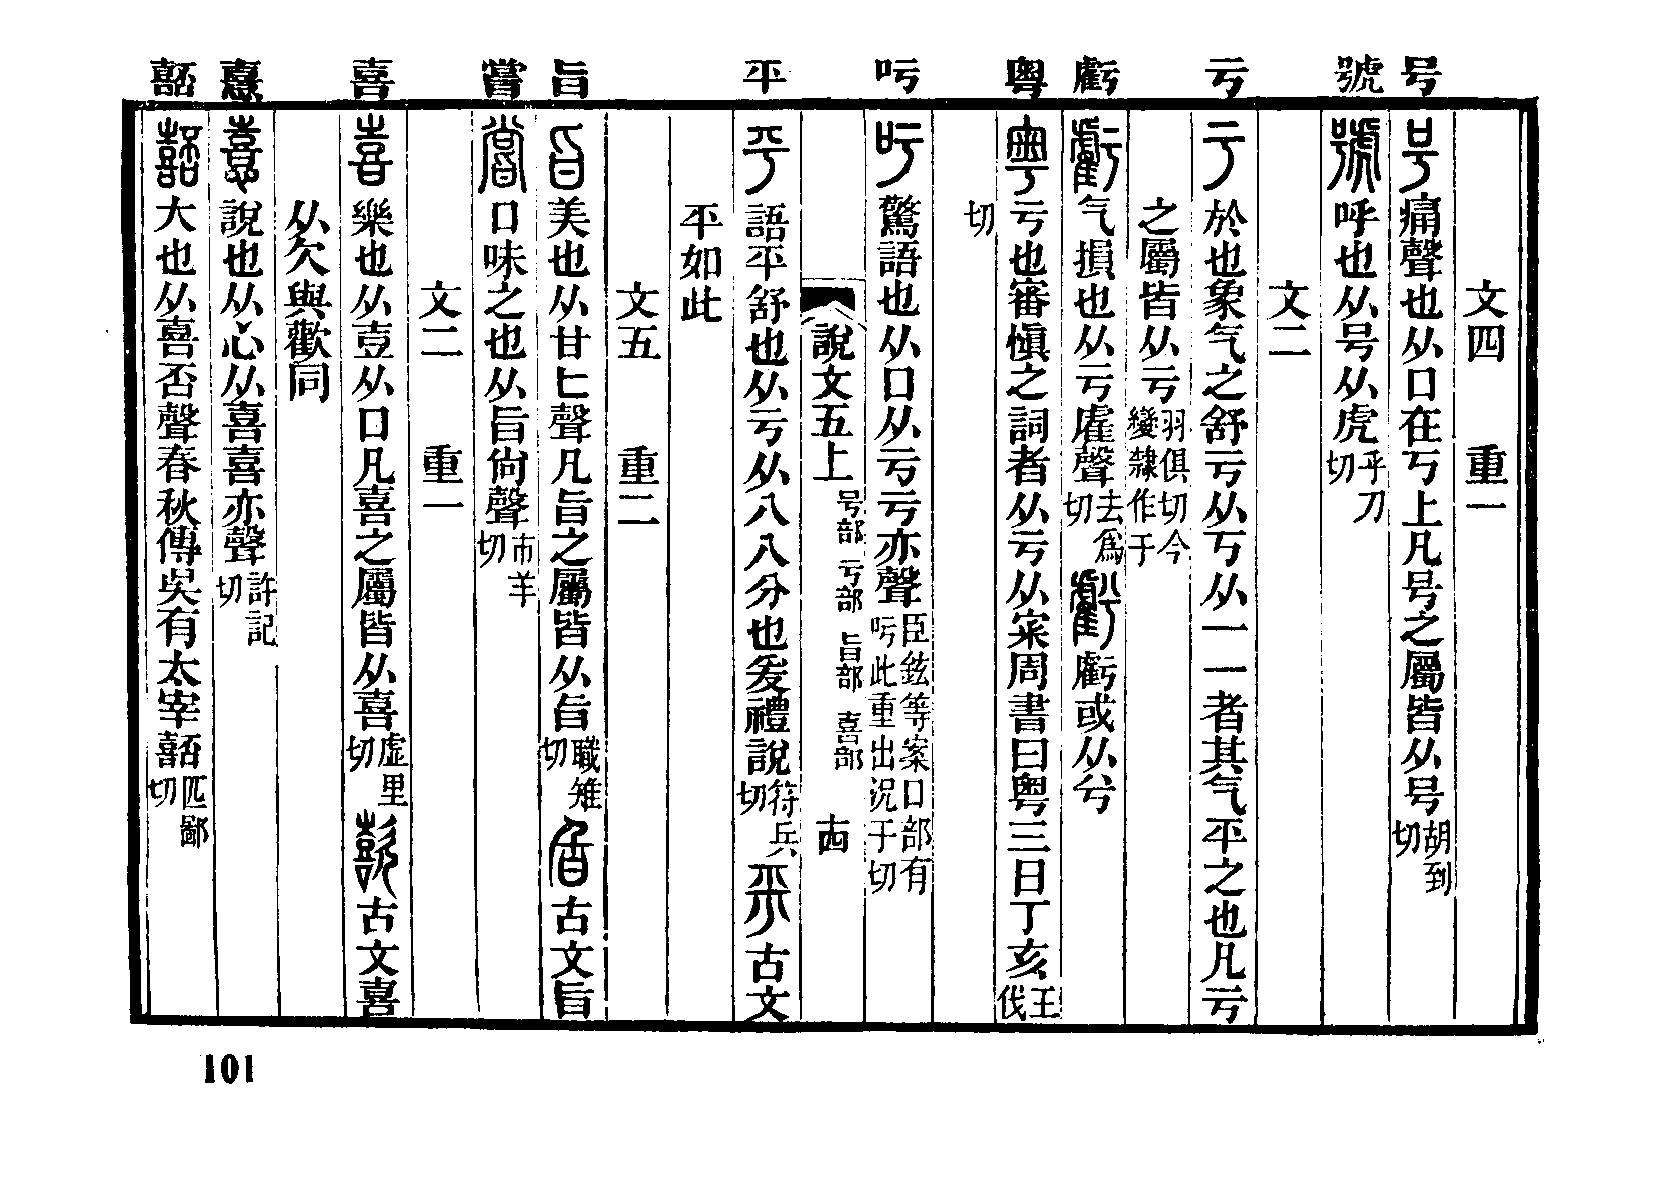 号 號 亏 虧 粤 吁 平 旨 嘗 喜 憙 嚭
文四 重一
号痛聲也从口在丂上凡号之屬皆从号胡到切
號呼也从号从虎乎刀切
文二
亏於也象气之舒亏从丂从一一者其气平之也凡亏
之屬皆从亏羽俱切今變隸作于
虧气損也从亏雐聲去爲切 虧虧或从兮
粤亏也審愼之詞者从亏从宷周書曰粤三日丁亥王伐
切
吁驚語也从口从亏亏亦聲臣鉉等案口部有吁此重出況于切
說文五上 号部 亏部 旨部 喜部 十四
平語平舒也从亏从八八分也爰禮說符兵切 𠀘古文
平如此
文五 重二
旨美也从甘匕聲凡旨之屬皆从旨職雉切 𣅌古文旨
嘗口味之也从旨尙聲市羊切
文二 重一
喜樂也从壴从口凡喜之屬皆从喜虛里切 歖古文喜
从欠與歡同
憙說也从心从喜喜亦聲許記切
嚭大也从喜否聲春秋傳吳有太宰嚭匹鄙切
101